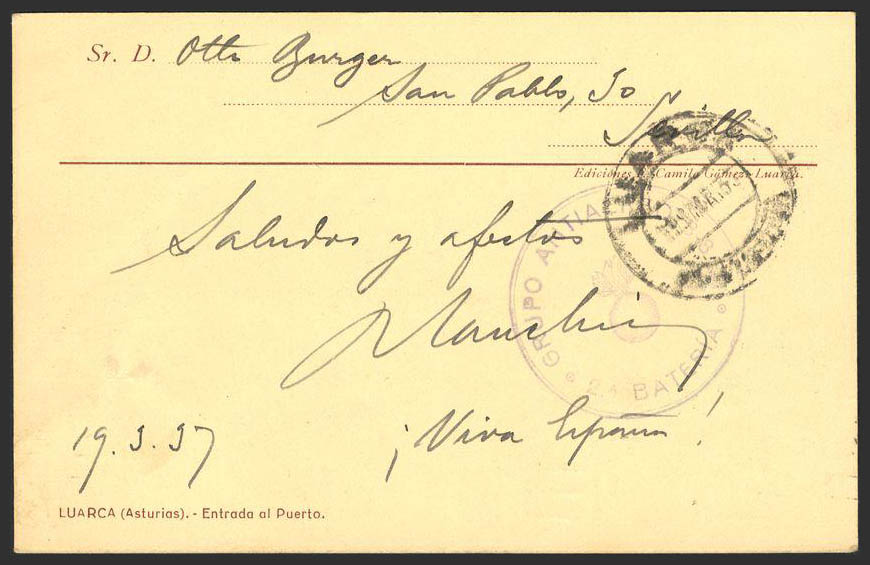 Sr. D. Otto Burger
San Pablo, 30
Sevilla
Ediciones Camila Gómez. Luarca.
LUARCA
MAR.
GRUPO ANTIA
2ª BATERÍA
Saludos y afectos
19.3.37
¡Viva España!
LUARCA (Asturias). - Entrada al Puerto.